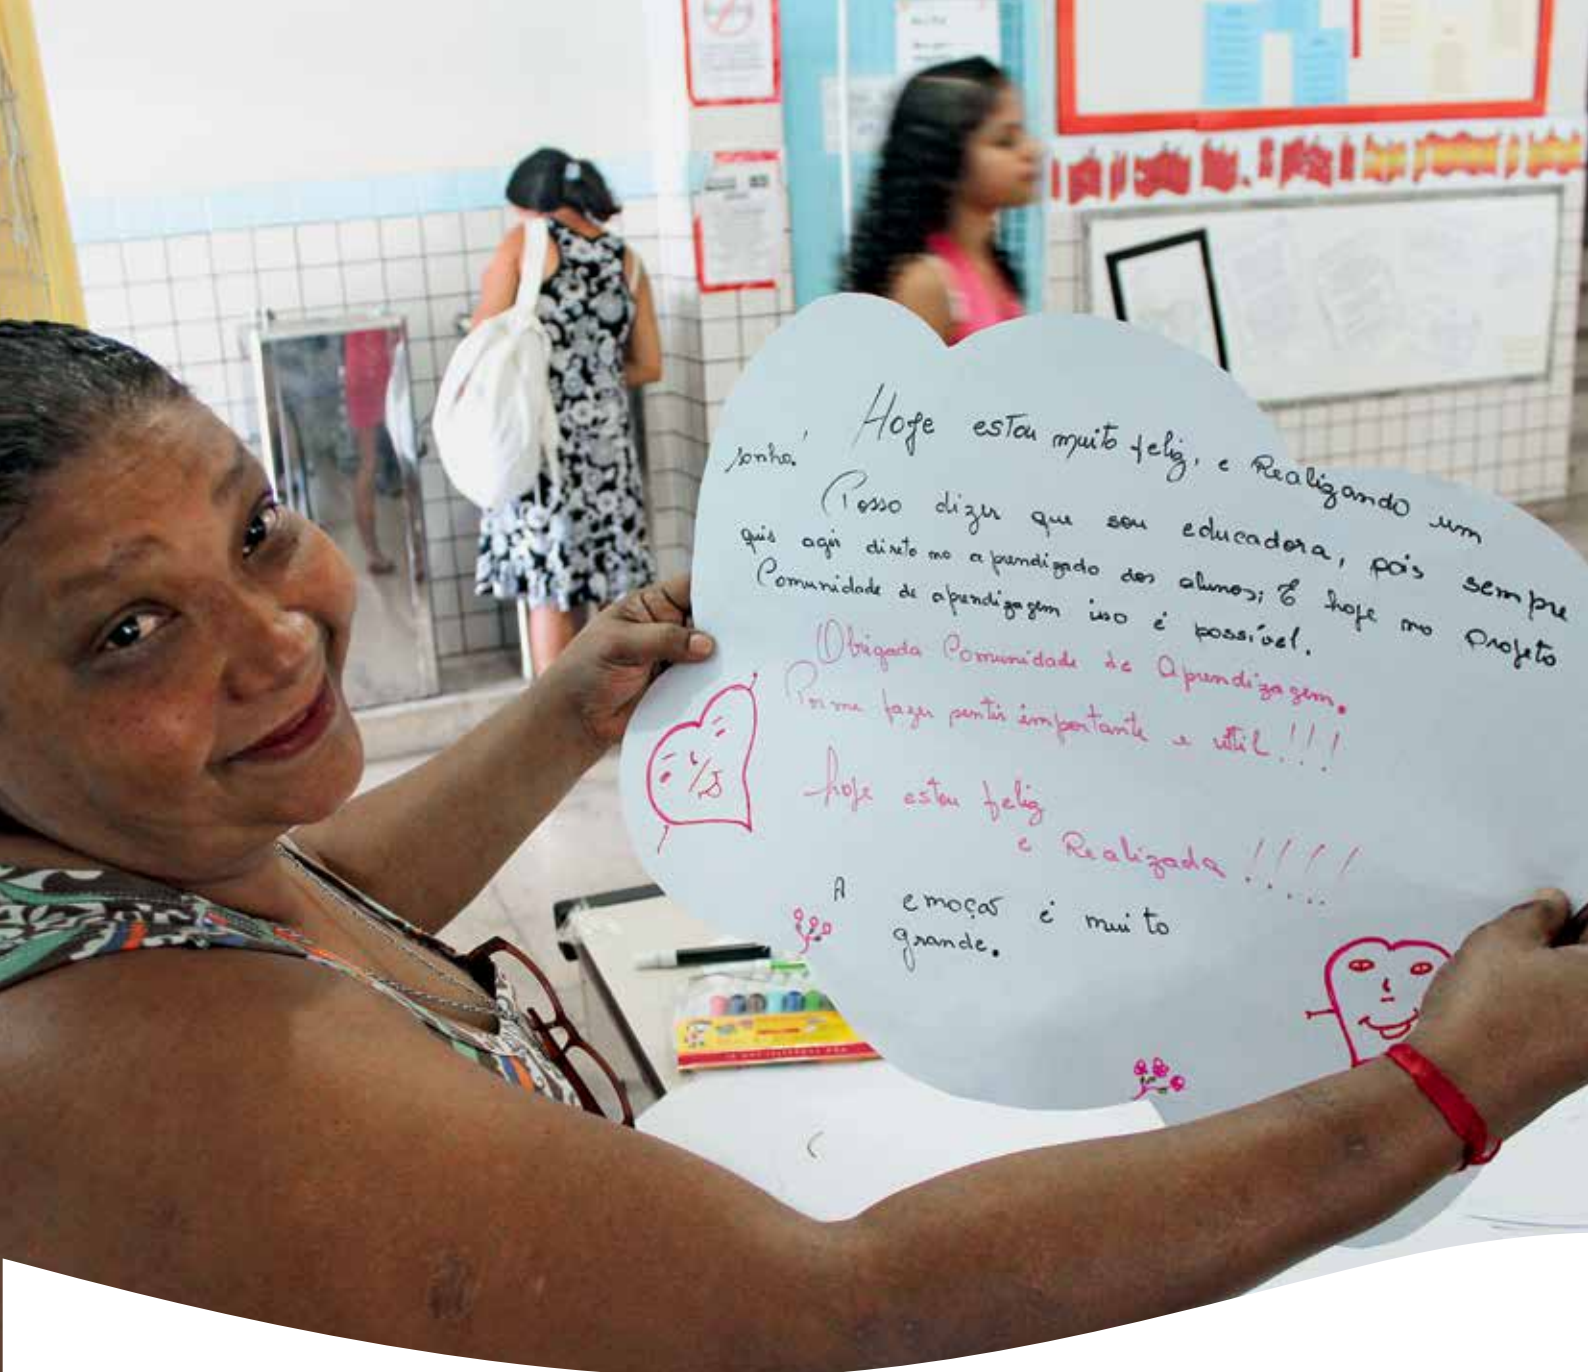 Hoje estou muito feliz, e Realizando um
sonho!
Posso dizer que sou educadora, pois sempre
quis agir direto no aprendizado dos alunos; E hoje no Projeto
Comunidade de aprendizagem isso é possível.
Obrigada Comunidade de Aprendizagem.
Por me fazer sentir importante e útil!!!
hoje estou feliz
e Realizada!!!!
A emoção é muito
grande.